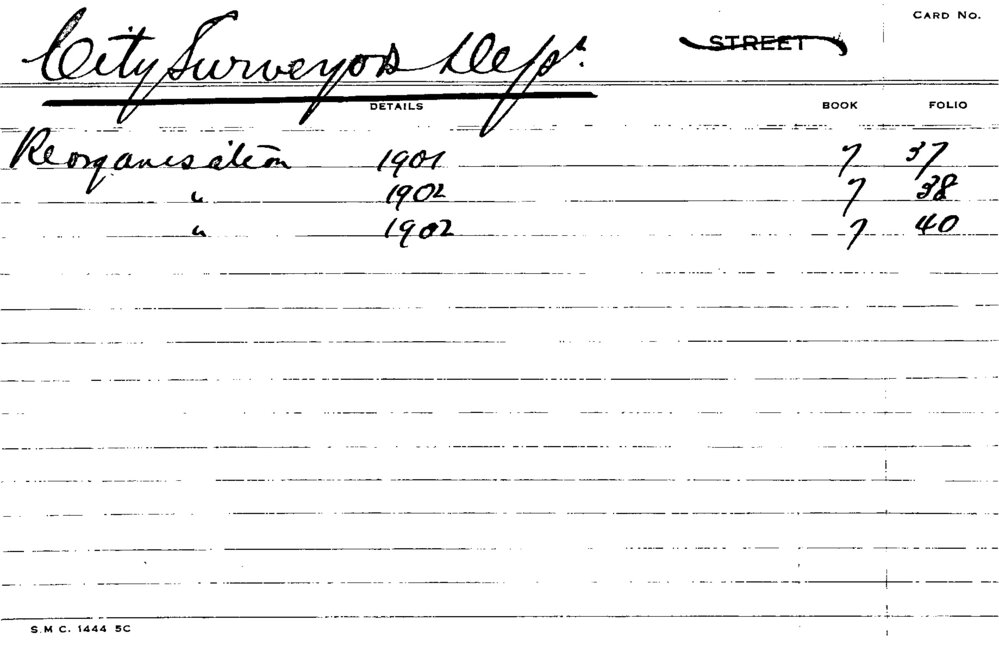 CARD No.
City Surveyors Dept.
STREET
DETAILS BOOK FOLIO
Reorganisation 1901 7 37
" 1902 7 38
" 1902 7 40
S.M C. 1444 5C